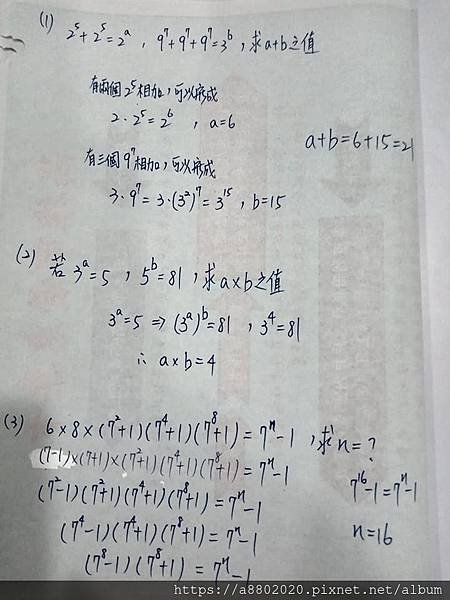 (1) 2⁵+2⁵=2ᵃ , 9⁷+9⁷+9⁷=3ᵇ , 求a+b之值
有兩個2⁵相加,可以寫成
2·2⁵=2⁶ , a=6
a+b=6+15=21
有三個9⁷相加,可以寫成
3·9⁷=3·(3²)⁷=3¹⁵ , b=15
(2) 若3ᵃ=5 , 5ᵇ=81 , 求a×b之值
3ᵃ=5 ⇒ (3ᵃ)ᵇ=81 , 3⁴=81
∴ a×b=4
(3) 6×8×(7²+1)(7⁴+1)(7⁸+1)=7ⁿ-1 , 求n=?
(7-1)×(7+1)×(7²+1)(7⁴+1)(7⁸+1)=7ⁿ-1
(7²-1)(7²+1)(7⁴+1)(7⁸+1)=7ⁿ-1
7¹⁶-1=7ⁿ-1
(7⁴-1)(7⁴+1)(7⁸+1)=7ⁿ-1
n=16
(7⁸-1)(7⁸+1)=7ⁿ-1
https://a8802020.pixnet.net/album